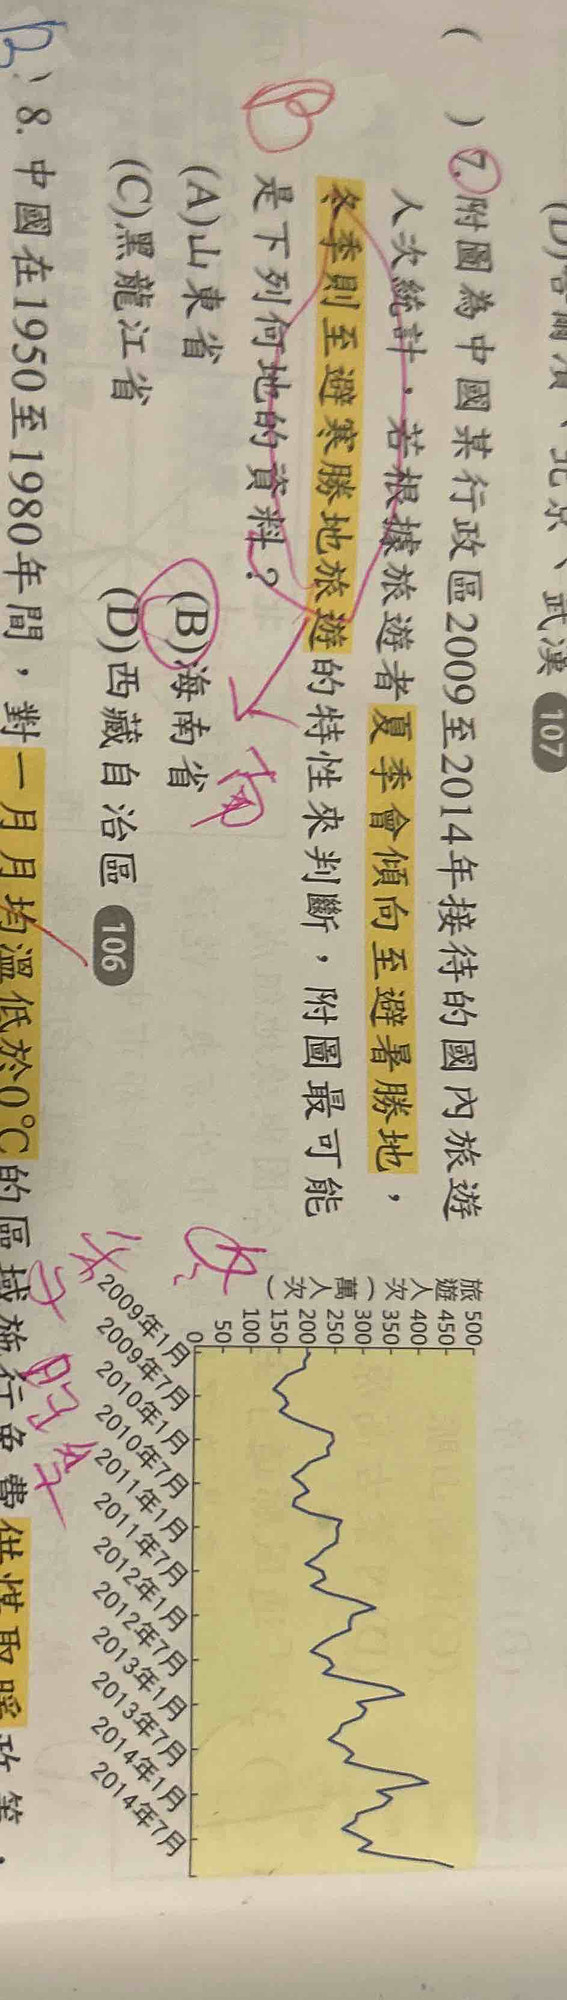 (D)哈爾濱、北京、武漢 107
(　)7.附圖為中國某行政區2009至2014年接待的國內旅遊
人次統計，若根據旅遊者夏季會傾向至避暑勝地，
冬季則至避寒勝地旅遊的特性來判斷，附圖最可能
是下列何地的資料？
B
(A)山東省
(B)海南省
南
(C)黑龍江省
(D)西藏自治區 106
旅遊人次（萬人次）
500
450
400
350
300
250
200
150
100
50
0
2009年1月
2009年7月
2010年1月
2010年7月
2011年1月
2011年7月
2012年1月
2012年7月
2013年1月
2013年7月
2014年1月
2014年7月
)8.中國在1950至1980年間，對一月月均溫低於0℃的區域施行免費供煤取暖政策，